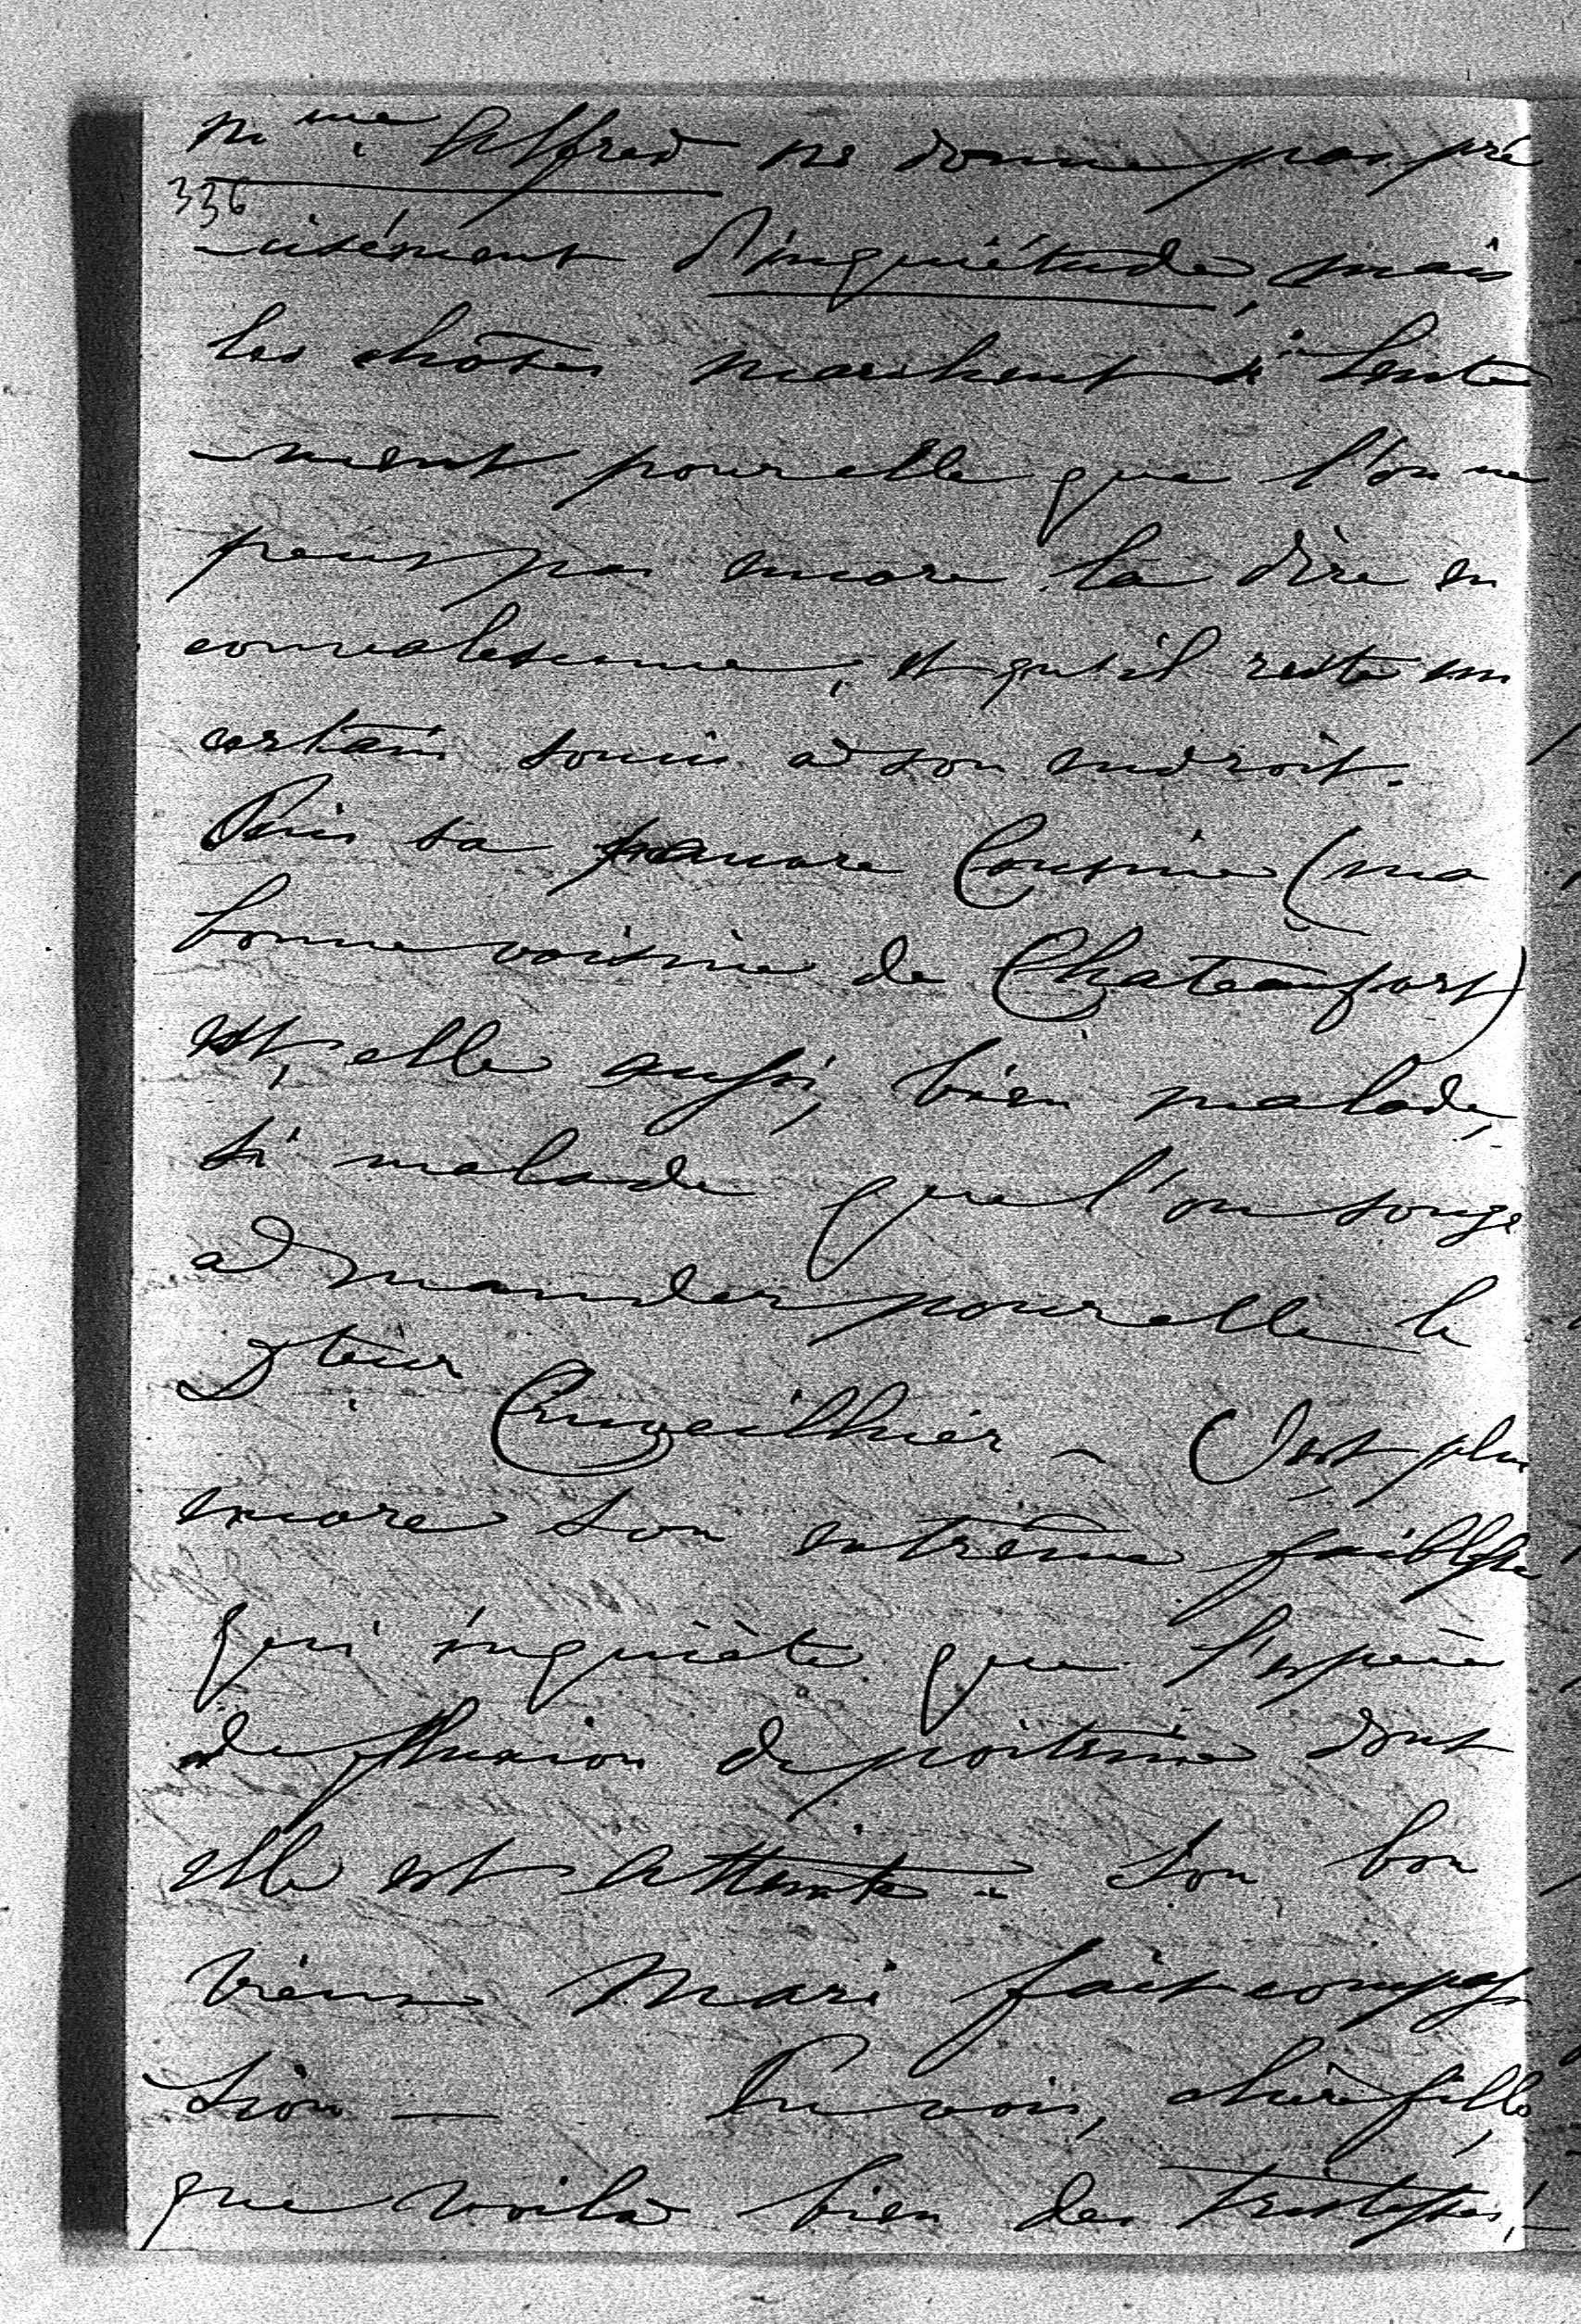 Mme. Alfred ne donne pas pré
336
-cisément d'inquiétude, mais
les choses marchent si lente
-ment pour elle que l'on ne
peut pas encore la dire en
convalescence, et qu'il reste un
certain souci à son endroit.
Puis sa pauvre Cousine (ma
bonne voisine de Chateaufort)
est, elle aussi, bien malade,
si malade que l'on songe
à mander pour elle le
Dteur Cruveilhier - C'est plus
encore son extrême faiblesse
qui inquiète que l'espèce
de fluxion de poitrine dont
elle est atteinte - Son bon
vieux Mari fait compas
sion - Tu vois, chère fille,
que voilà bien des tristesses! -